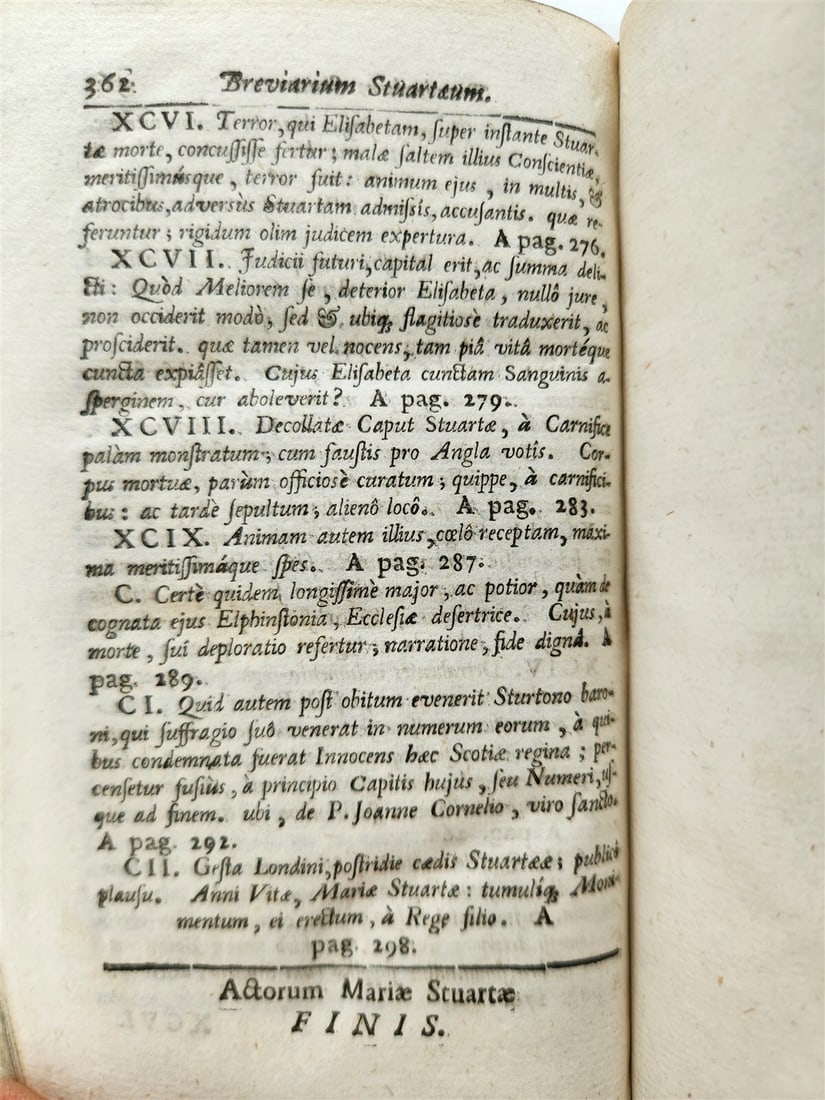 362. Breviarium Stuartæum.
XCVI. Terror, qui Eliſabetam, ſuper inſtante Stuar-
tæ morte, concuſſiſſe fertur; malæ ſaltem illius Conſcientiæ,
meritiſſimúsque, terror fuit: animum ejus, in multis, &
atrocibus, adversùs Stuartam admiſsis, accuſantis. quæ re-
feruntur; rigidum olim judicem expertura. A pag. 276.
XCVII. Judicii futuri, capital erit, ac ſumma deli-
cti: Quòd Meliorem ſe, deterior Eliſabeta, nullô jure,
non occiderit modò, ſed & ubiq; flagitioſè traduxerit, ac
proſciderit. quæ tamen vel nocens, tam piâ vitâ mortéque
cuncta expiâſſet. Cujus Eliſabeta cunctam Sanguinis a-
ſperginem, cur aboleverit? A pag. 279.
XCVIII. Decollatæ Caput Stuartæ, à Carnifice
palàm monſtratum; cum fauſtis pro Angla votîs. Cor-
pus mortuæ, parùm officioſè curatum; quippe, à carnifici-
bus: ac tardè ſepultum; alienô locô. A pag. 283.
XCIX. Animam autem illius, cœlô receptam, maxi-
ma meritiſſimáque ſpes. A pag. 287.
C. Certè quidem, longiſſimè major, ac potior, quàm de
cognata ejus Elphinſtonia, Eccleſiæ deſertrice. Cujus, à
morte, ſuî deploratio refertur; narratione, fide dignâ. A
pag. 289.
CI. Quid autem poſt obitum evenerit Sturtono baro-
ni, qui ſuffragio ſuô venerat in numerum eorum, à qui-
bus condemnata fuerat Innocens hæc Scotiæ regina; per-
cenſetur fuſiùs, à principio Capitis hujus, ſeu Numeri, uſ-
que ad finem. ubi, de P. Joanne Cornelio, viro ſancto.
A pag. 292.
CII. Geſta Londini, poſtridie cædis Stuartææ; publicô
plauſu. Anni Vitæ, Mariæ Stuartæ: tumulíq; Moni-
mentum, ei erectum, à Rege filio. A
pag. 298.
Actorum Mariæ Stuartæ
FINIS.